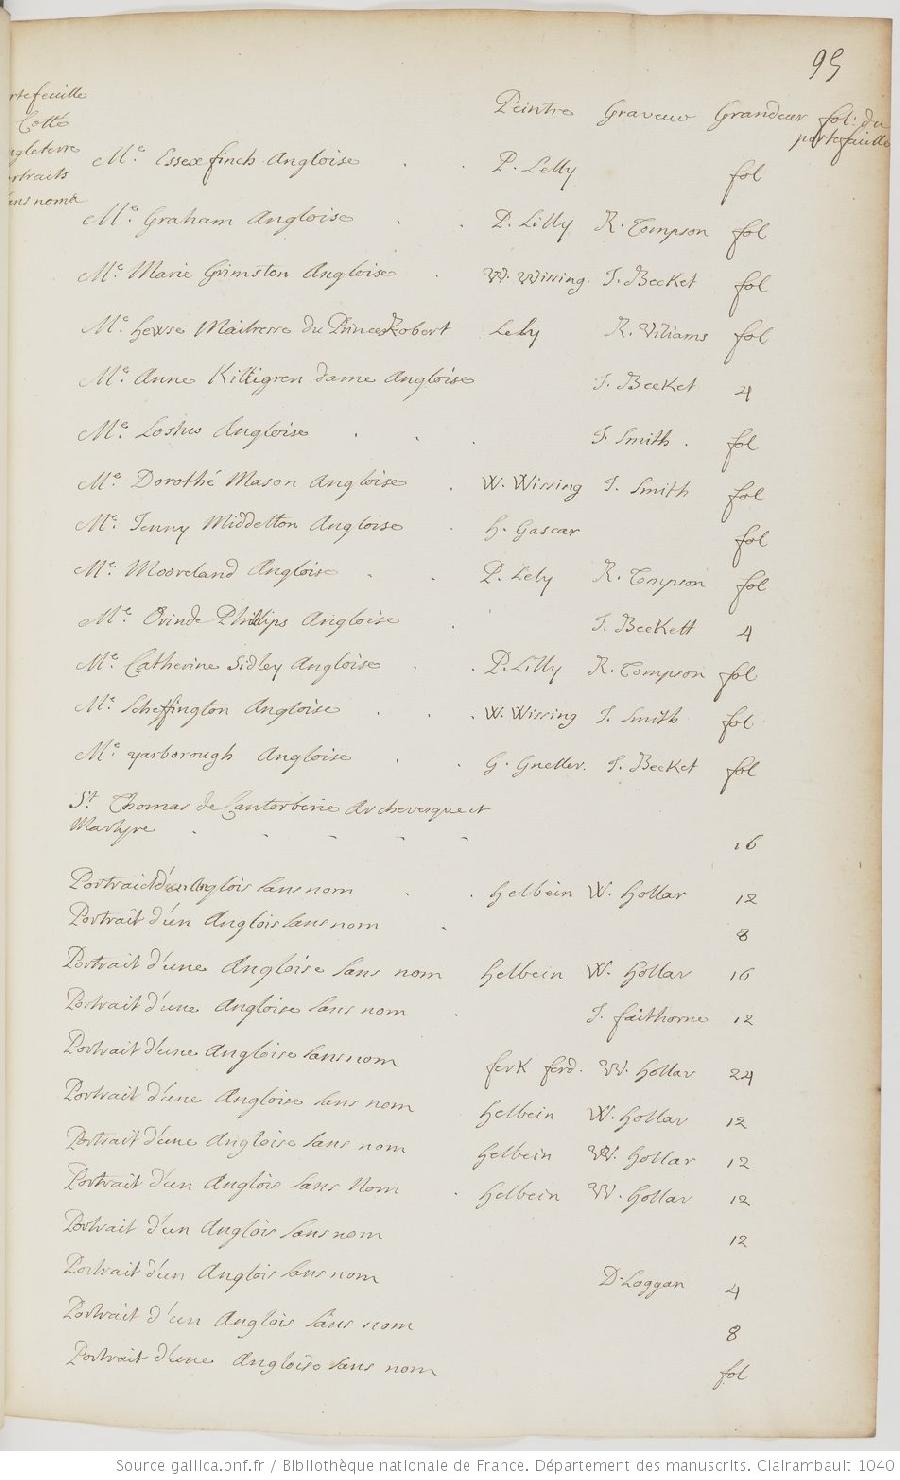 95
Peintre Graveur Grandeur fol: du
portefeuille
rtefeuille
Cotte
ngleterre
ortraits
ans noms
Me. Essex finch Angloise . . P. Lelly fol
Me. Graham Angloise . . P. Lilly R. Tompson fol
Me. Marie Grimston Angloise . W. Wissing J. Becket fol
Me. hewse Maitresse du Prince Robert Lely R. Wiliams fol
Me. Anne Killigren dame Angloise J. Becket 4
Me. Loftus Angloise . . . J. Smith . fol
Me. Dorothé Mason Angloise . W. Wissing J. Smith fol
Me. Jenny Middelton Angloise . h. Gascar fol
Me. Mooreland Angloise . . P. Lely R. Tompson fol
Me. Orinde Philips Angloise . J. Beckett 4
Me. Catherine Sidley Angloise . . P. Lilly R. Tompson fol
Me. Scheffington Angloise . . . W. Wissing J. Smith fol
Me. yarborough Angloise . . G. Gneller. J. Becket fol
St. Thomas de Canterberie Archevesque et
Martyre . . . . . 16
Portrait d'un Anglois sans nom . . helbein W. hollar 12
Portrait d'un Anglois sans nom . 8
Portrait d'une Angloise sans nom helbein W. hollar 16
Portrait d'une Angloise sans nom . J. faithorne 12
Portrait d'une Angloise sans nom ferk ferd. W. hollar 24
Portrait d'une Angloise sans nom helbein W. hollar 12
Portrait d'une Angloise sans nom helbein W. hollar 12
Portrait d'un Anglois sans Nom . helbein W. hollar 12
Portrait d'un Anglois sans nom 12
Portrait d'un Anglois sans nom D. Loggan 4
Portrait d'un Anglois sans nom 8
Portrait d'une Angloise sans nom fol
Source gallica.bnf.fr / Bibliothèque nationale de France. Département des manuscrits. Clairambault 1040